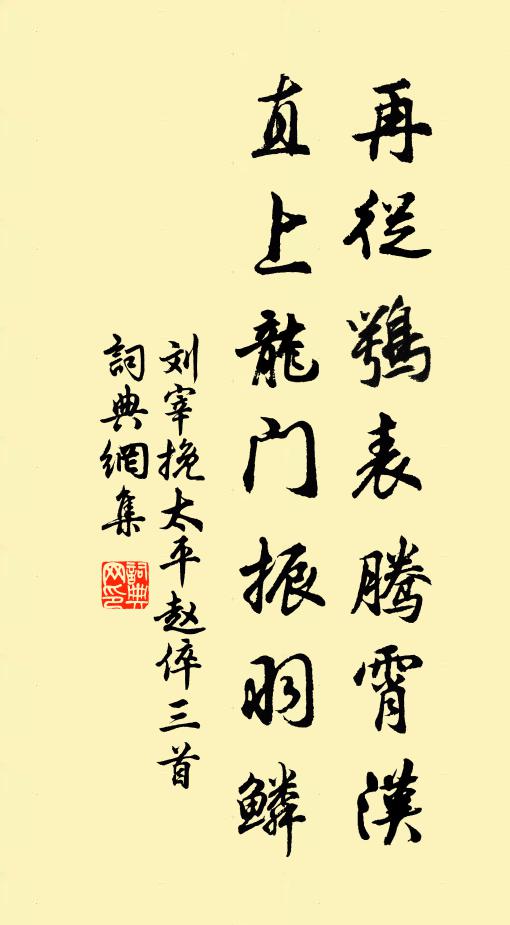 再從鶚表騰霄漢
直上龍门振羽鱗
刘宰挽太平赵倅三首
詞典網集
詞典
网印